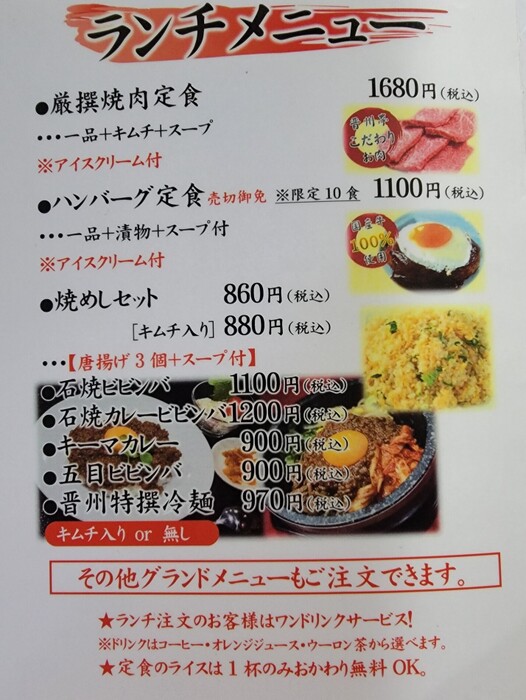 ランチメニュー
●厳撰焼肉定食 1680円(税込)
…一品+キムチ+スープ
※アイスクリーム付
晋州亭
こだわり
お肉
●ハンバーグ定食 売切御免 ※限定10食 1100円(税込)
…一品+漬物+スープ付
※アイスクリーム付
国産牛
100%
使用
●焼めしセット 860円(税込)
[キムチ入り] 880円(税込)
…【唐揚げ3個+スープ付】
●石焼ビビンバ 1100円(税込)
●石焼カレービビンバ 1200円(税込)
●キーマカレー 900円(税込)
●五目ビビンバ 900円(税込)
●晋州特撰冷麺 970円(税込)
キムチ入り or 無し
その他グランドメニューもご注文できます。
★ランチ注文のお客様はワンドリンクサービス!
※ドリンクはコーヒー・オレンジジュース・ウーロン茶から選べます。
★定食のライスは1杯のみおかわり無料OK。